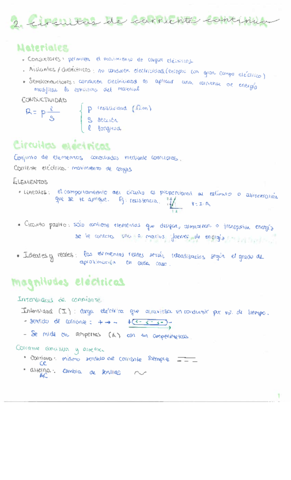 2. Circuitos de corriente continua
Materiales
• Conductores: permiten el movimiento de cargas eléctricas
• Aislantes / dieléctricos: no conducen electricidad (excepto con gran campo eléctrico)
• Semiconductores: conducen
modifica la
CONDUCTIVIDAD
R = ρ ℓ/S
ρ resistividad (Ω·m)
S sección
ℓ longitud
Circuitos eléctricos
Conjunto de elementos conectados mediante conductores.
Corriente eléctrica: movimiento de cargas
ELEMENTOS
• Lineales: el comportamiento del circuito es proporcional al estímulo o alimentación
que se le aplique. Ej resistencia
• Circuito pasivo: solo contiene elementos que disipan, almacenan o transfieren energía
fuentes de energía
• Ideales y reales: los elementos reales serán idealizados según el grado de
aproximación en cada caso
magnitudes eléctricas
Intensidad de corriente
Intensidad (I): carga eléctrica que atraviesa un conductor por ud. de tiempo.
- Sentido de corriente: + → -
- Se mide en amperios (A) con un amperímetro
Corriente continua y alterna
• Continua: mismo sentido de corriente siempre
CC
• alterna: cambia de sentido
AC